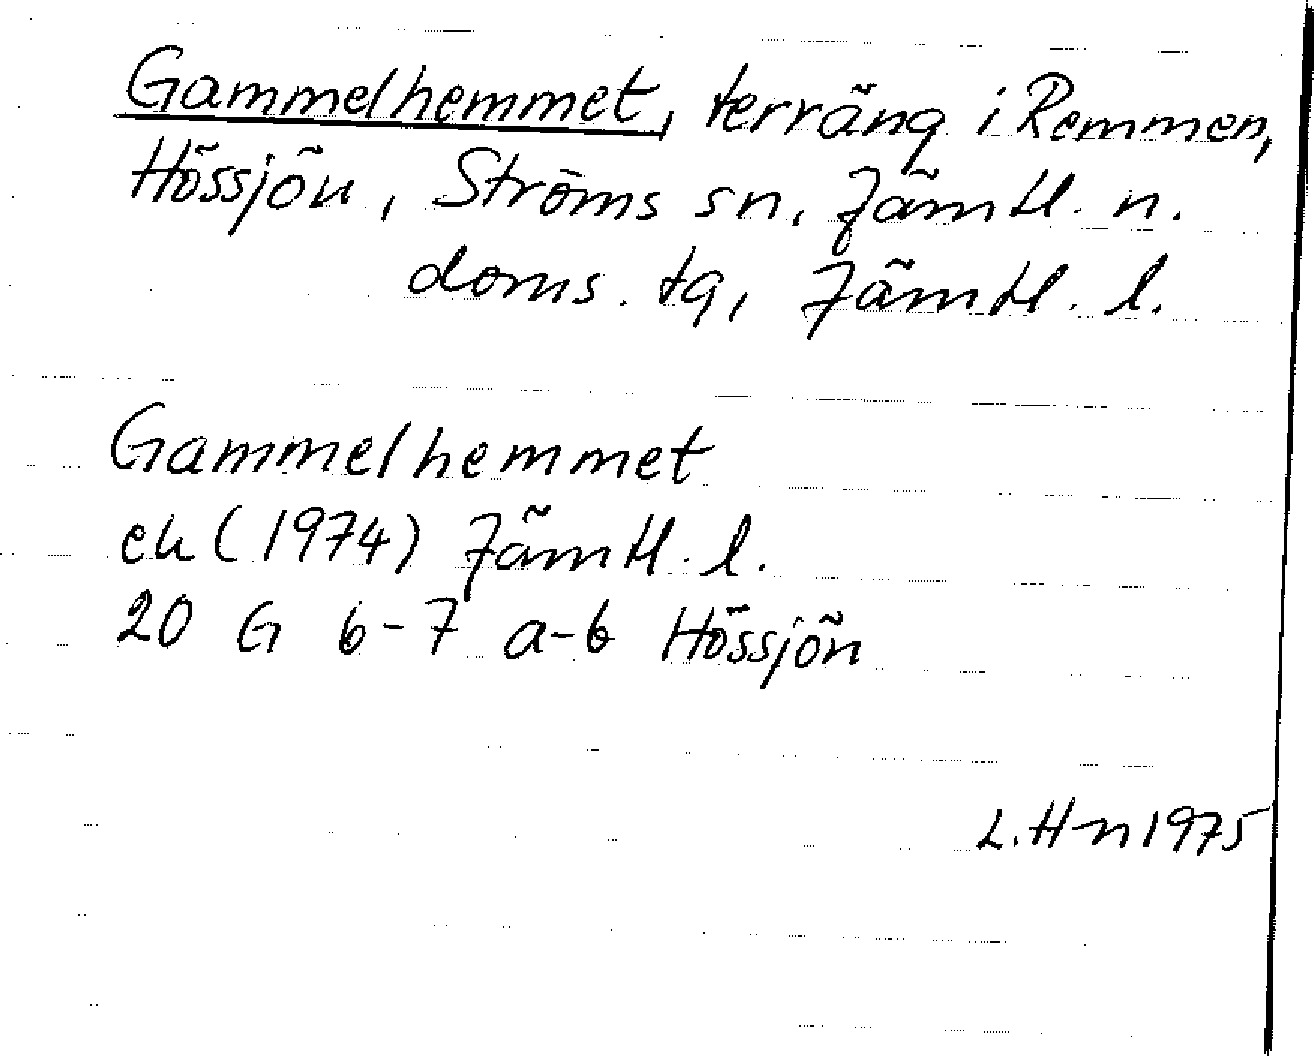 Gammelhemmet, terräng i Remmen,
Hössjön, Ströms sn, Jämtl. n.
doms. tg, Jämtl. l.
Gammelhemmet
ek (1974) Jämtl. l.
20 G 6-7 a-b Hössjön
L.H-n 1975